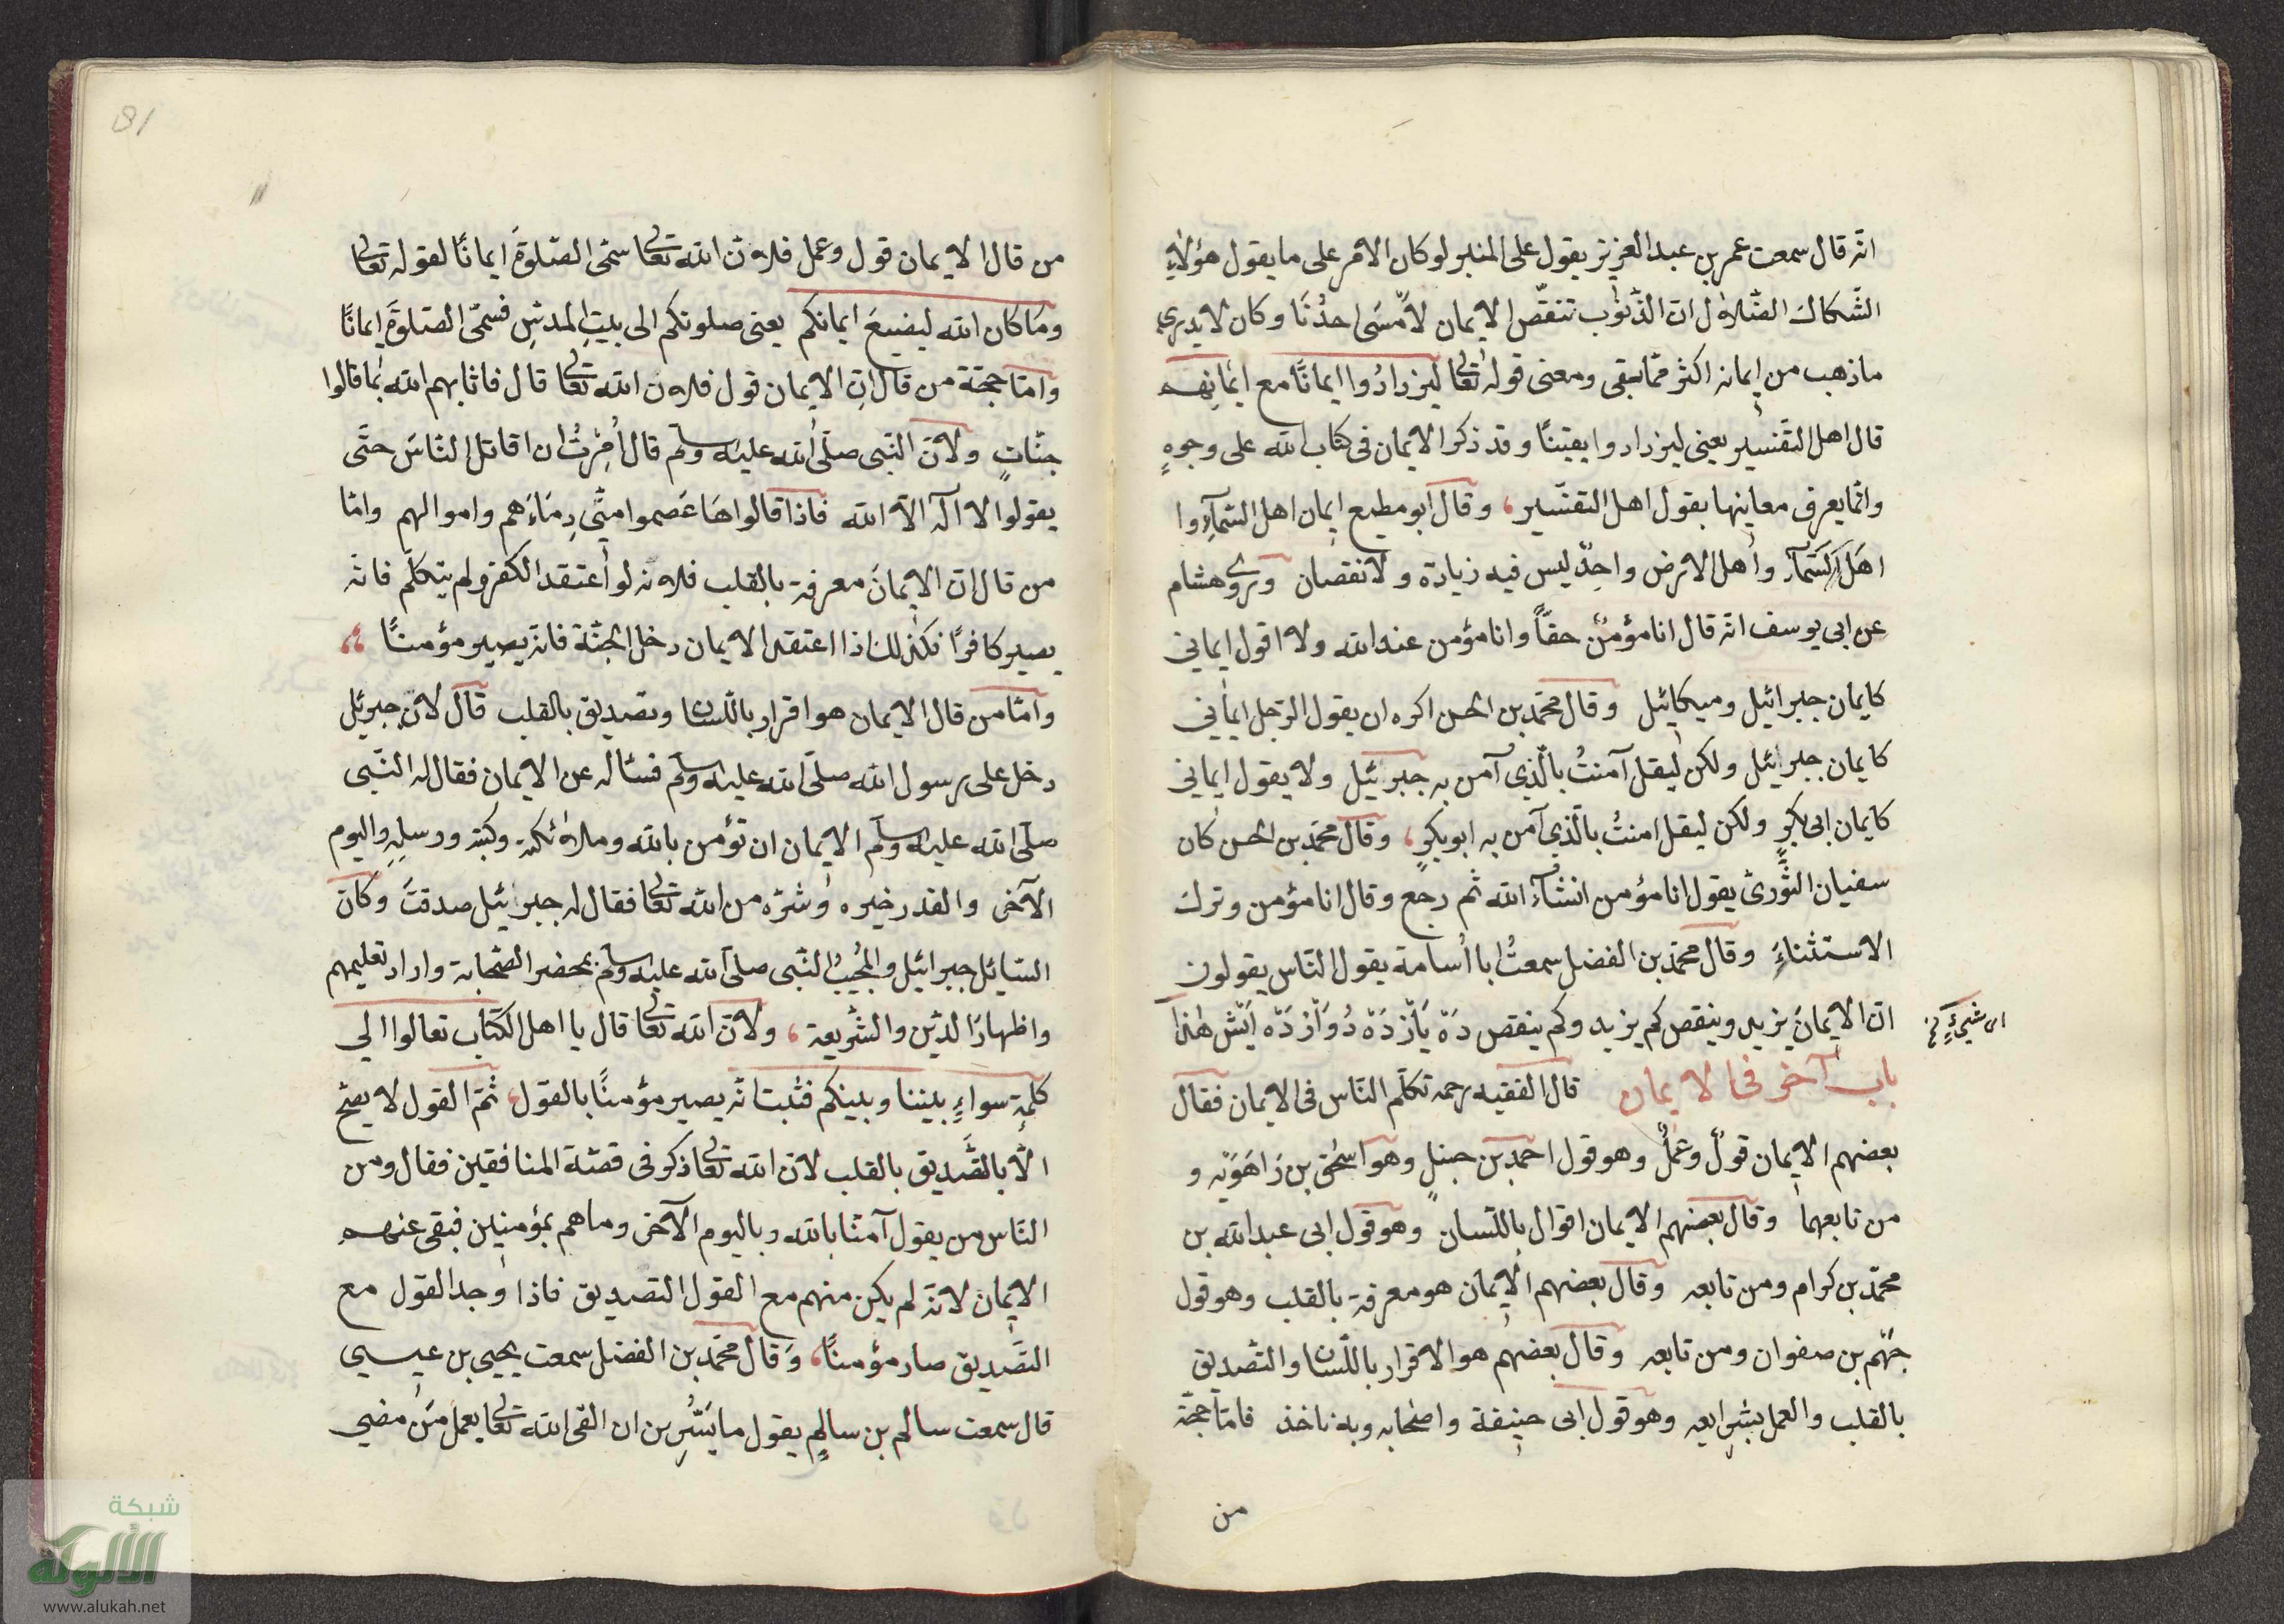 انّه قال سمعت عمر بن عبد العزيز يقول على المنبر لو كان الامر على ما يقول هؤلاء
الشّكاك الضّلاول انّ الذّنوب تنقّص الايمان لأمسى احدُنا وكان لا يدرى
ما ذهب من ايمانه اكثر ممّا بقى ومعنى قوله تعالى ليزدادُوا ايمانًا مع ايمانهم
قال اهل التّفسير يعنى ليزدادوا يقينًا وقد ذكر الايمان فى كتاب الله على وجوهٍ
وانّما يعرف معاينها بقول اهل التفسّير، وقال ابو مطيع ايمان اهل السّمآءِ وا
اهل السّمآء واهل الارض واحدٌ ليس فيه زيادة ولا نقصان وروى هشام
عن ابى يوسف انّه قال انا مؤمنٌ حقّاً وانا مؤمن عند الله ولا اقول ايمانى
كايمان جبرائيل وميكائيل وقال محمّد بن الحسن اكره ان يقول الرّجل ايمانى
كايمان جبرائيل ولكن ليقل آمنتُ بالّذى آمن به جبرئيل ولا يقول ايمانى
كايمان ابى بكرٍ ولكن ليقل امنتُ بالّذى آمن به ابو بكرٍ، وقال محمّد بن الحسن كان
سفيان الثّورىّ يقول انا مؤمن انشآء الله ثم رجع وقال انا مؤمن وترك
الاستثناءَ وقال محمّد بن الفضل سمعتُ ابا اُسامة يقول النّاس يقولون
انّ الايمانَ يزيد وينقص كم يزيد وكم ينقص دَهْ يَازْدَهْ دُوَازْدَهْ ايْش هٰذا
اى شىءٍ نخ
باب آخر فى الايمان قال الفقيه رحمه تكلّم النّاس فى الايمان فقال
بعضهم الايمان قولٌ وعملٌ وهو قول احمد بن حنبلٍ وهو اسحٰق بن رَاهَوَيْه و
من تابعهما وقال بعضهم الايمان اقوال باللّسان وهو قول ابى عبد الله بن
محمّد بن كرام ومن تابعه وقال بعضهم الايمان هو معرفة بالقلب وهو قول
جهْم بن صفوان ومن تابعه وقال بعضهم هو الاقرار باللّسان والتّصديق
بالقلب والعمل بشرايعه وهو قول ابى حنيفة واصحابه وبه ناخذ فامّا حجّة
من
81
من قال الايمان قول وعمل فلانّ الله تعالى سمّى الصّلوةَ ايمانًا لقوله تعالى
وما كان الله ليضيعَ ايمانكم يعنى صلوتكم الى بيتِ المقدسِ فسمّى الصّلوةَ ايمانًا
وامّا حجّة من قال انّ الايمان قول فلانّ الله تعالى قال فاثابهم الله بما قالوا
جنّاتٍ ولانّ النّبى صلّى الله عليه وسلم قال اُمِرْتُ ان اقاتل النّاسَ حتّى
يقولوا لا آله الّا الله فاذا قالواهَا عَصموا منّى دِمَاءَهم واموالهم وامّا
من قال انّ الايمانَ معرفة بالقلب فلانه لو اعتقد الكفر ولم يتكلّم فانّه
يصير كافرًا فكذلك اذا اعتقد الايمان دخل الجنّة فانّه يصير مؤمنًا
وامّا من قال الايمان هو اقرار باللّسان وتصديق بالقلب قال لانّ جبرئيل
دخل على رسول الله صلّى الله عليه وسلم فسئاله عن الايمان فقال له النّبى
صلّى الله عليه وسلم الايمان ان تؤمن بالله وملائكته وكتبه ورسله واليوم
الآخر والقدر خيره وشرّه من الله تعالى فقال له جبرائيل صدقتَ وكان
السّائيل جبرائيل والمجُيبُ النّبى صلّى الله عليه وسلم بمحضر الصّحابة واراد تعليمهم
واظهارَ الدّين والشّريعة، ولانّ الله تعالى قال يا اهل الكتاب تعالوا الى
كلمةٍ سواءٍ بيننا وبينكم فثبت انّه يصير مؤمنًا بالقول، ثمّ القول لا يصحّ
الّا بالتّصديق بالقلب لانّ الله تعالى ذكر فى قصّة المنافقين فقال ومن
النّاس من يقول آمنّا بالله وباليوم الآخر وما هم بمؤمنين فبقى عنهم
الايمان لانّه لم يكن منهم مع القول التصديق فاذا وجد القول مع
التّصديق صار مؤمنًا، وقال محمّد بن الفضل سمعت يحيى بن عيسى
قال سمعت سالم بن سالمٍ يقول ما يَسُرّنى ان القى الله تعالى بعمل مَن مضى
شبكة
الألوكة
www.alukah.net